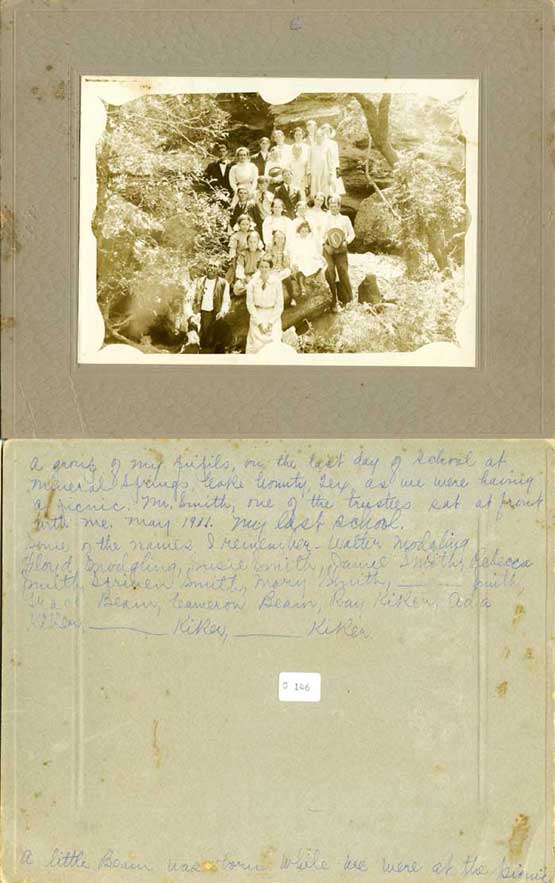 A group of my pupils, on the last day of school at
Mineral Springs, Coke County, Tex, as we were having
a picnic. Mr. Smith, one of the trustees sat at front
with me. May 1911. My last school.
Some of the names I remember - Walter Modgling
Floyd Modgling, Susie Smith, Smith, Rebecca
Smith, Scriven Smith, Mary Smith, ______ Smith,
Grace Beam, Cameron Beam, Ray Kiker, Ada
Kiker, ______ Kiker, ______ Kiker
146
A little Beam was born while we were at the picnic